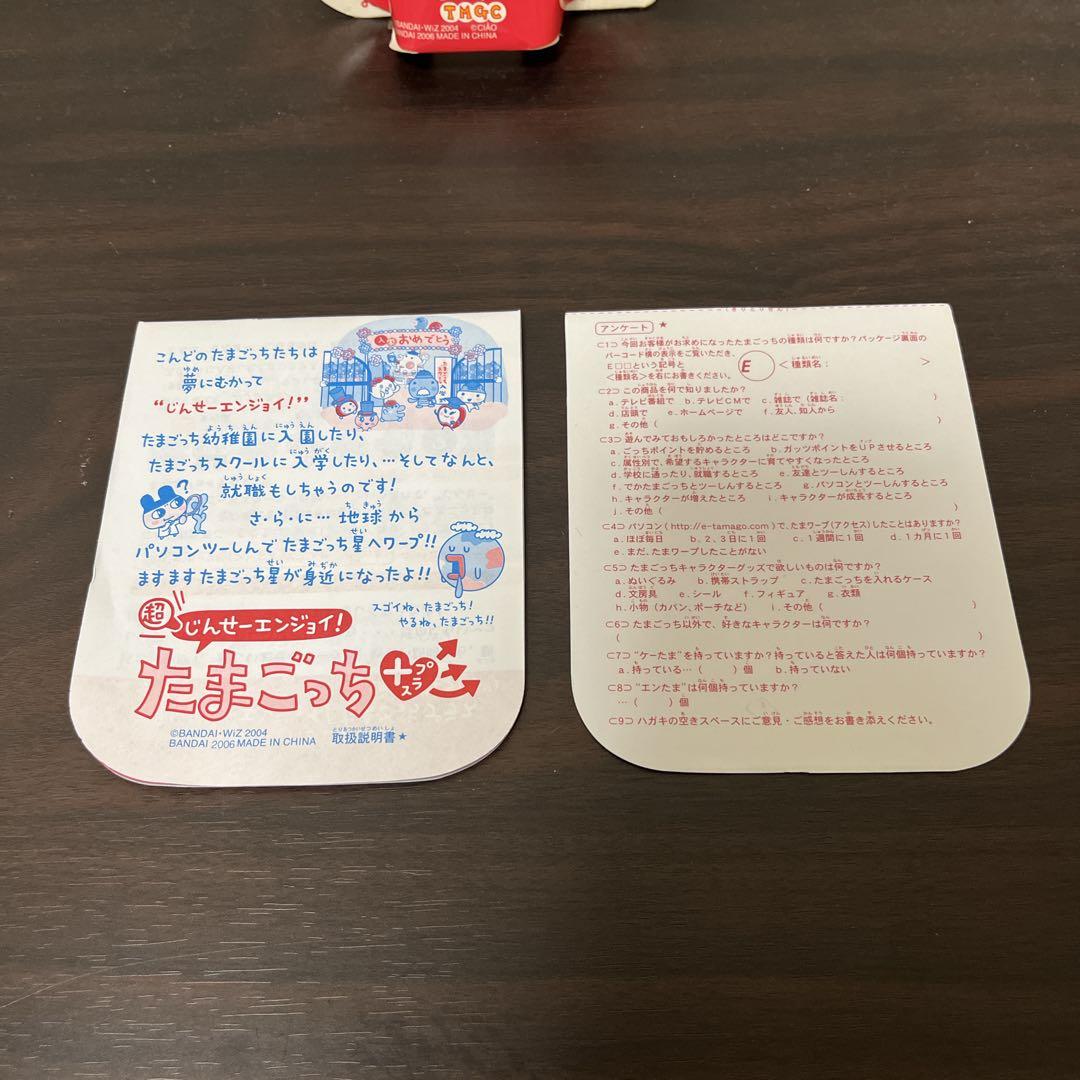 TMGC
BANDAI・WiZ 2004 ©CIAO
BANDAI 2006 MADE IN CHINA
入園おめでとう
こんどのたまごっちたちは
夢にむかって
“じんせーエンジョイ!”
たまごっち幼稚園に入園したり、
たまごっちスクールに入学したり、…そしてなんと、
就職もしちゃうのです!
さ・ら・に… 地球から
パソコンツーしんでたまごっち星へワープ!!
ますますたまごっち星が身近になったよ!!
スゴイね、たまごっち!
やるね、たまごっち!!
超じんせーエンジョイ!
たまごっち
プラス
©BANDAI・WiZ 2004
BANDAI 2006 MADE IN CHINA
取扱説明書★
アンケート ★
⊂1⊃ 今回お客様がお求めになったたまごっちの種類は何ですか?パッケージ裏面の
バーコード横の表示をご覧いただき、
E□□という記号と
<種類名>を右にお書きください。
E <種類名: >
⊂2⊃ この商品を何で知りましたか?
a. テレビ番組で b. テレビCMで c. 雑誌で (雑誌名: )
d. 店頭で e. ホームページで f. 友人、知人から
g. その他 ( )
⊂3⊃ 遊んでみておもしろかったところはどこですか?
a. ごっちポイントを貯めるところ b. ガッツポイントをUPさせるところ
c. 属性別で、希望するキャラクターに育てやすくなったところ
d. 学校に通ったり、就職するところ e. 友達とツーしんするところ
f. でかたまごっちとツーしんするところ g. パソコンとツーしんするところ
h. キャラクターが増えたところ i. キャラクターが成長するところ
j. その他 ( )
⊂4⊃ パソコン(http://e-tamago.com)で、たまワープ(アクセス)したことはありますか?
a. ほぼ毎日 b. 2、3日に1回 c. 1週間に1回 d. 1カ月に1回
e. まだ、たまワープしたことがない
⊂5⊃ たまごっちキャラクターグッズで欲しいものは何ですか?
a. ぬいぐるみ b. 携帯ストラップ c. たまごっちを入れるケース
d. 文房具 e. シール f. フィギュア g. 衣類
h. 小物 (カバン、ポーチなど) i. その他 ( )
⊂6⊃ たまごっち以外で、好きなキャラクターは何ですか?
( )
⊂7⊃ “ケーたま”を持っていますか?持っていると答えた人は何個持っていますか?
a. 持っている…( )個 b. 持っていない
⊂8⊃ “エンたま”は何個持っていますか?
…( )個
⊂9⊃ ハガキの空きスペースにご意見・ご感想をお書き添えください。